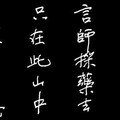 言師採藥去
只在此山中